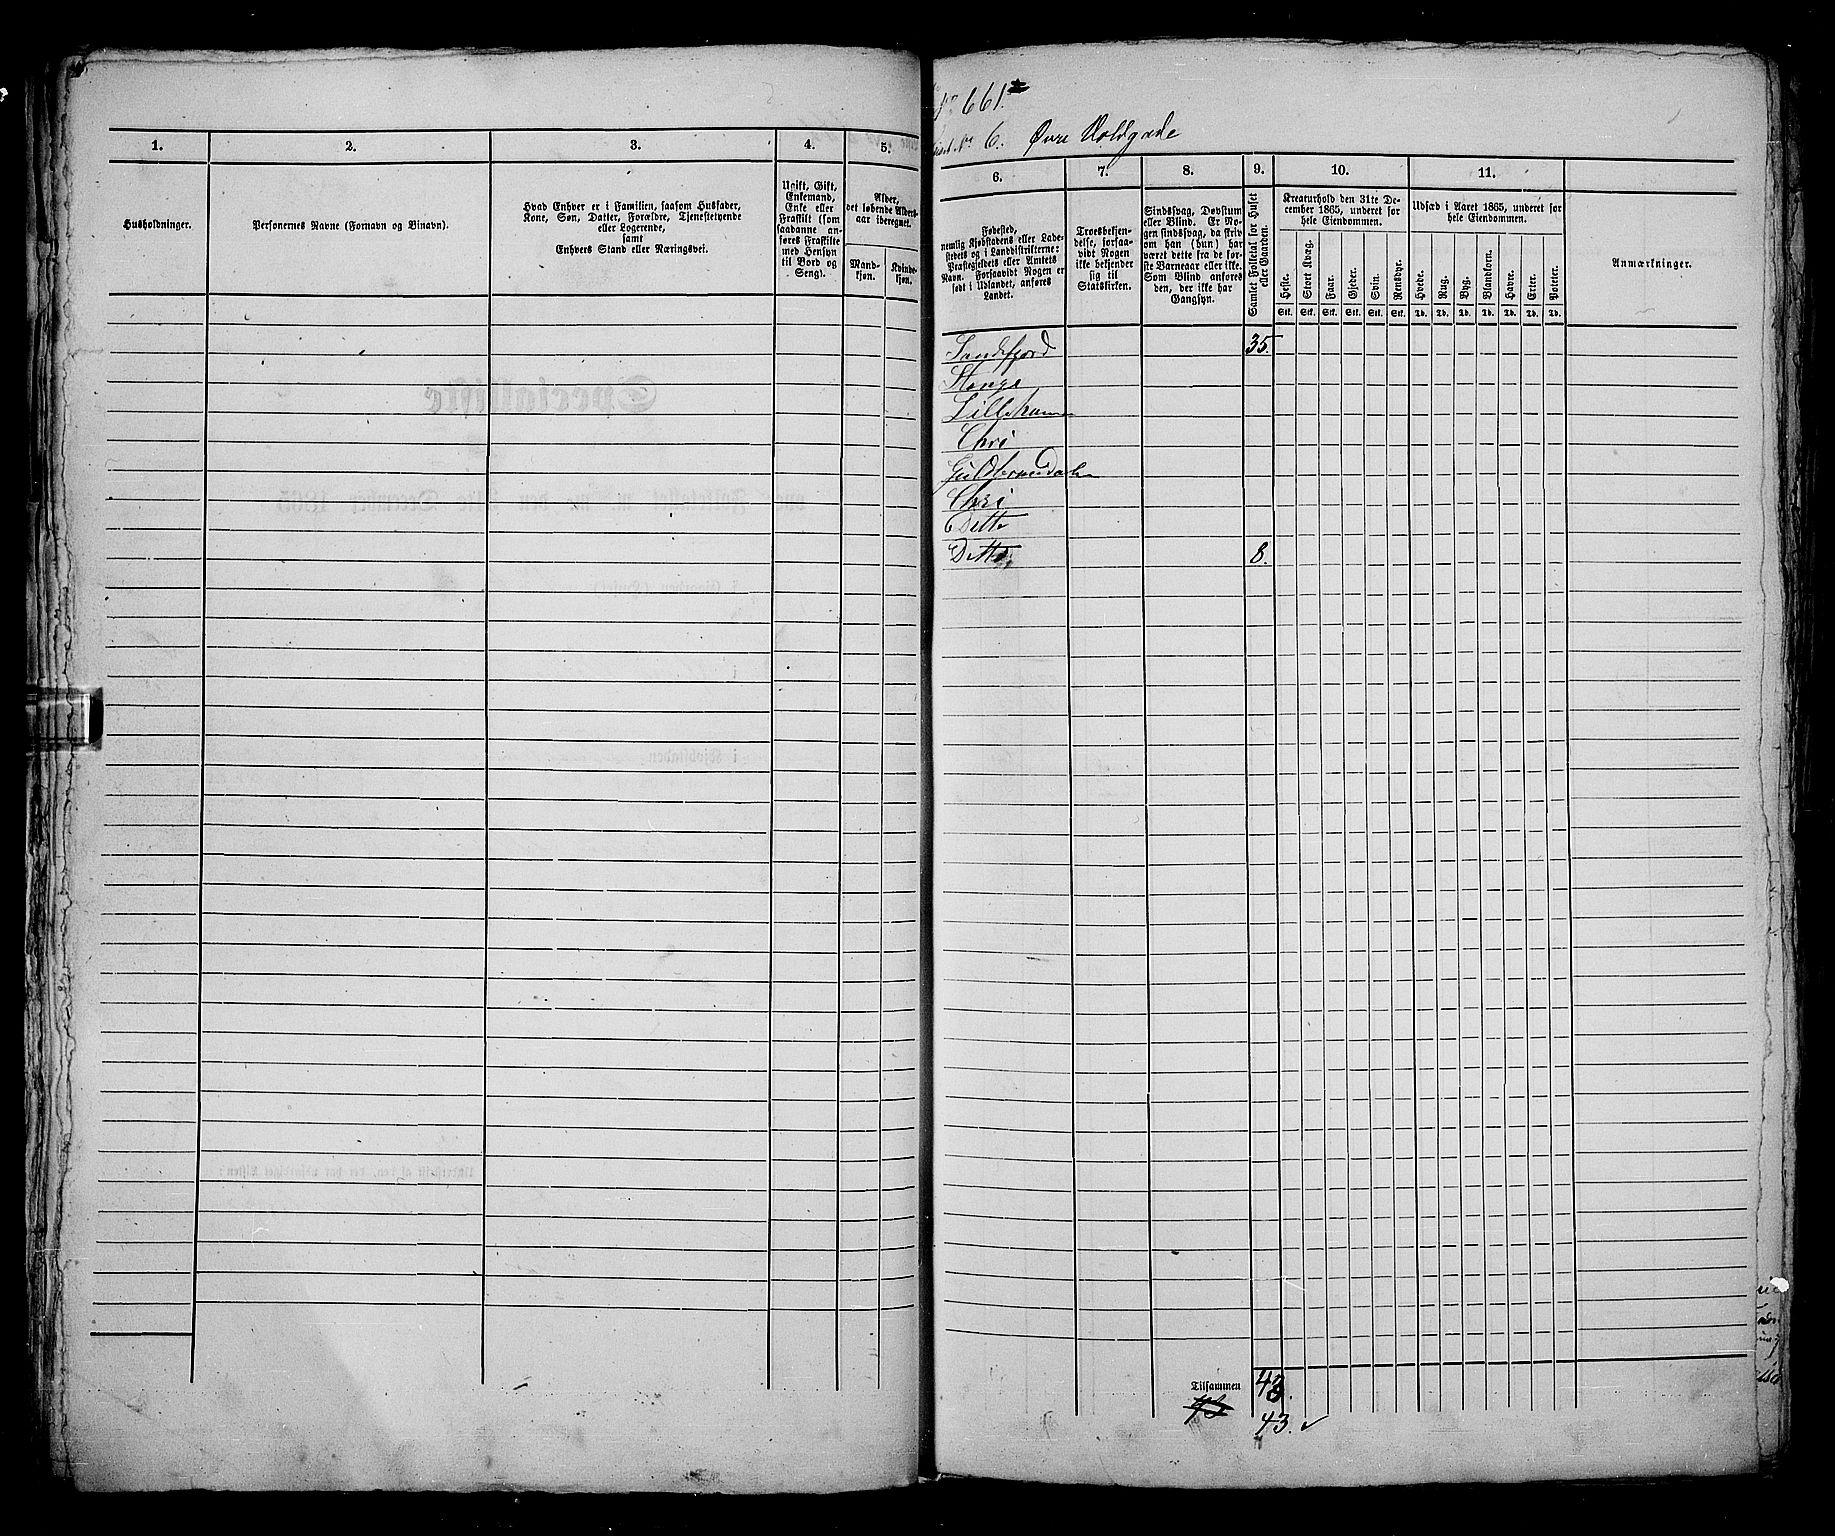 1.
2.
3.
4.
5.
Husholdninger.
Personernes Navne (Fornavn og Binavn).
Hvad Enhver er i Familien, saasom Husfader,
Kone, Søn, Datter, Forældre, Tjenestetyende
eller Logerende,
samt
Enhvers Stand eller Næringsvei.
Ugift, Gift,
Enkemand,
Enke eller
Fraskilt (som
saadanne an-
føres Fraskilte
med Hensyn
til Bord og
Seng).
Alder,
det løbende Alders-
aar iberegnet.
Mand-
kjøn.
Kvinde-
kjøn.
No 661
No 6. Øvre Voldgade
6.
7.
8.
9.
10.
11.
Fødested,
nemlig Kjøbstadens eller Lade-
stedets og i Landdistrikterne:
Præstegjeldets eller Amtets
Navn. Forsaavidt Nogen er
født i Udlandet, anføres
Landet.
Troesbekjen-
delse, forsaa-
vidt Nogen
ikke bekjender
sig til
Statskirken.
Sindssvag, Døvstum
eller Blind. Er No-
gen sindssvag, da skriv
om han (hun) har
været dette fra de før-
ste Barneaar eller ikke.
Som Blind anføres
den, der ikke har
Gangsyn.
Samlet Folketal for Huset
eller Gaarden.
Kreaturhold den 31te De-
cember 1865, underet for
hele Eiendommen.
Heste.
Stort Kvæg.
Faar.
Gjeder.
Svin.
Rensdyr.
Stk. Stk. Stk. Stk. Stk. Stk.
Udsæd i Aaret 1865, underet for
hele Eiendommen.
Hvede.
Rug.
Byg.
Blandkorn.
Havre.
Erter.
Poteter.
Td. Td. Td. Td. Td. Td. Td.
Anmærkninger.
Sandefjord 35.
Stange
Lillehammer
Chri
Gulbransdalen
Chri
Ditto
Ditto 8.
Tilsammen 43.
43.